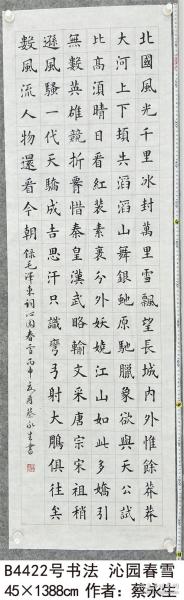 北國風光千里冰封萬里雪飄望長城內外惟餘莽莽
大河上下頓失滔滔山舞銀蛇原馳臘象欲與天公試
比高須晴日看紅裝素裹分外妖嬈江山如此多嬌引
無數英雄競折腰惜秦皇漢武略輸文采唐宗宋祖稍
遜風騷一代天驕成吉思汗只識彎弓射大鵰俱往矣
數風流人物還看今朝 錄毛澤東詞沁園春雪丙申夏月蔡永生書
B4422号书法 沁园春雪
45×1388cm 作者：蔡永生